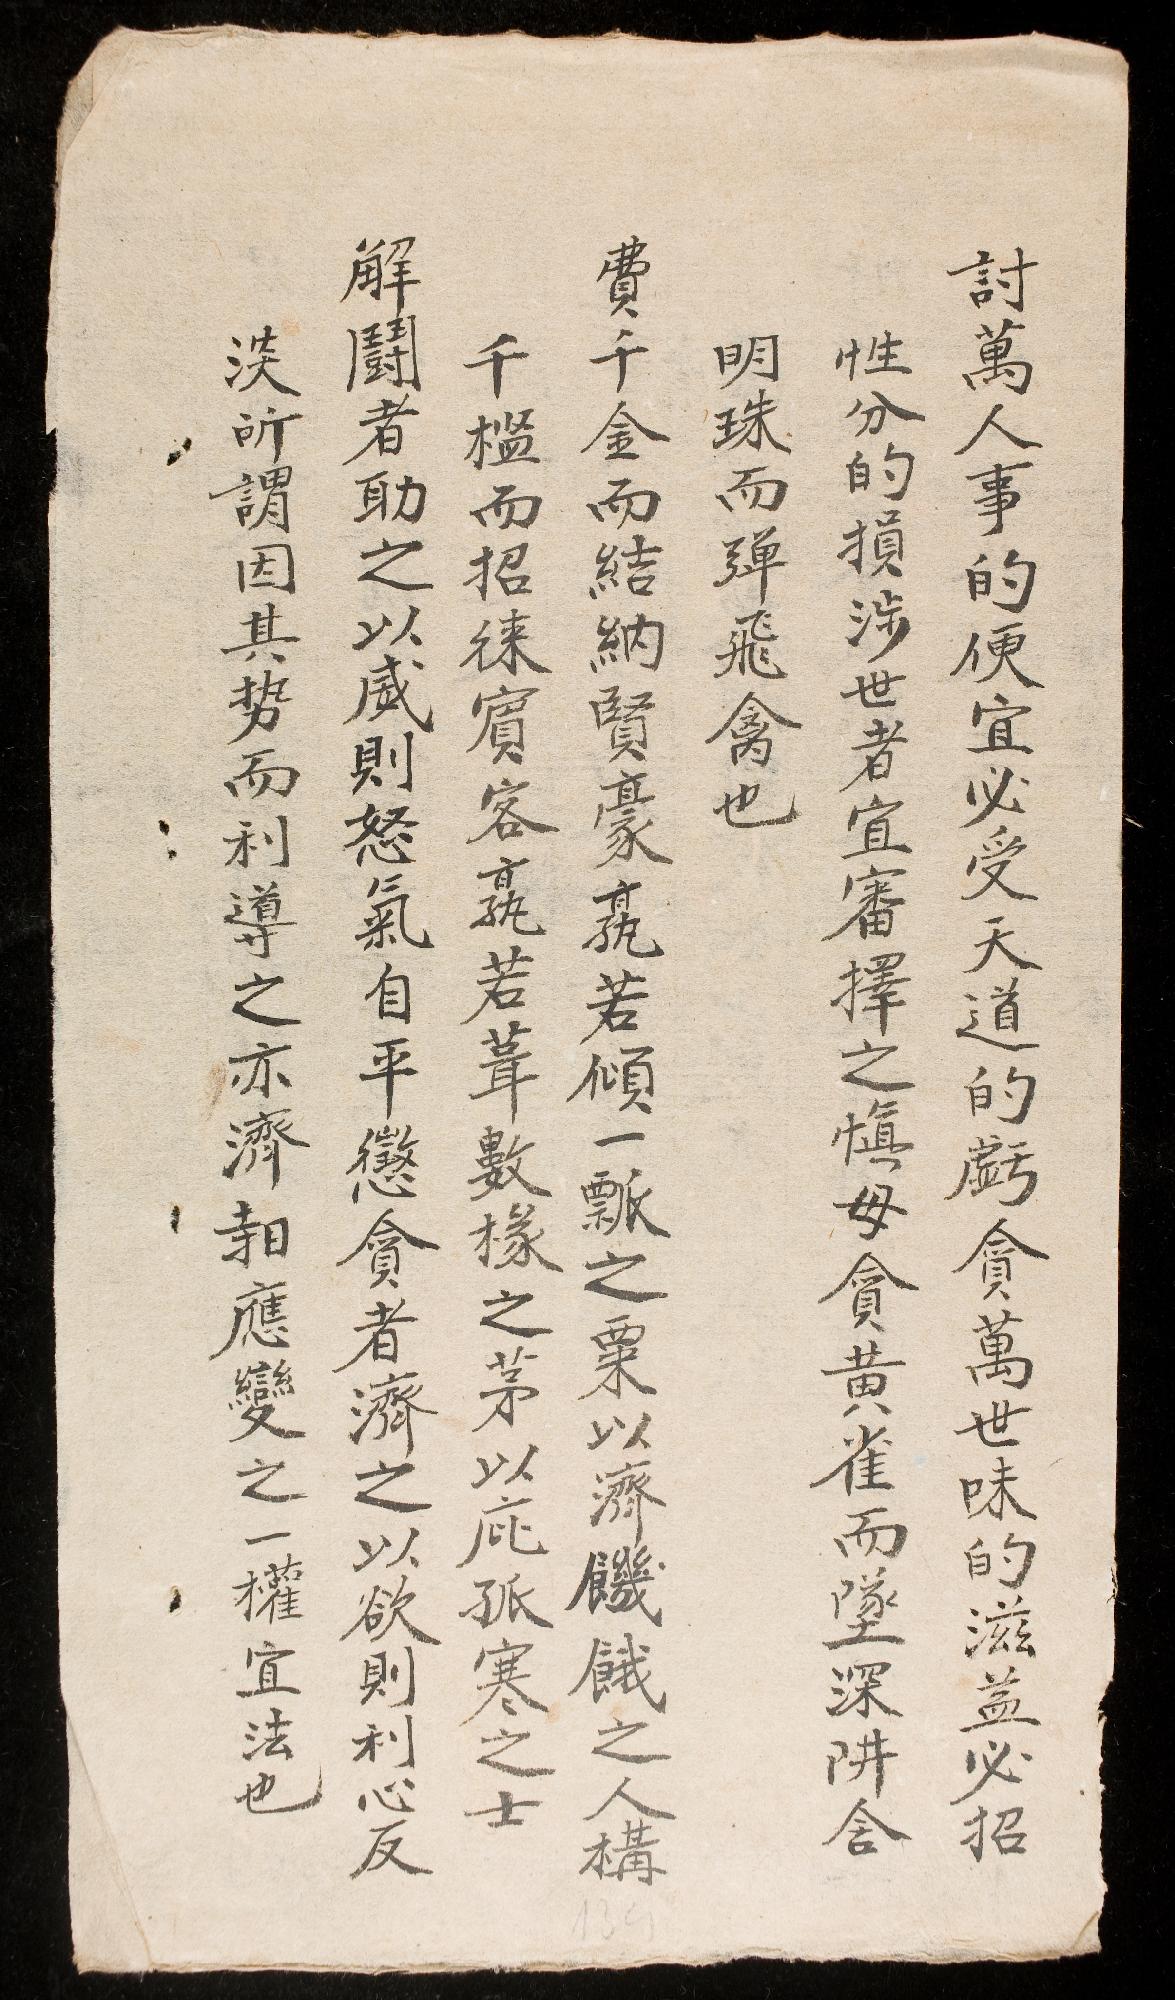 討萬人事的便宜必受天道的虧貪萬世味的滋益必招
性分的損涉世者宜審擇之慎毋貪黃雀而墜深阱舍
明珠而彈飛禽也
費千金而結納賢豪孰若傾一瓢之粟以濟饑餓之人構
千楹而招徠賓客孰若葺數椽之茅以庇孤寒之士
解鬪者助之以威則怒氣自平懲貪者濟之以欲則利心反
淡所謂因其势而利導之亦濟時應變之一權宜法也
139